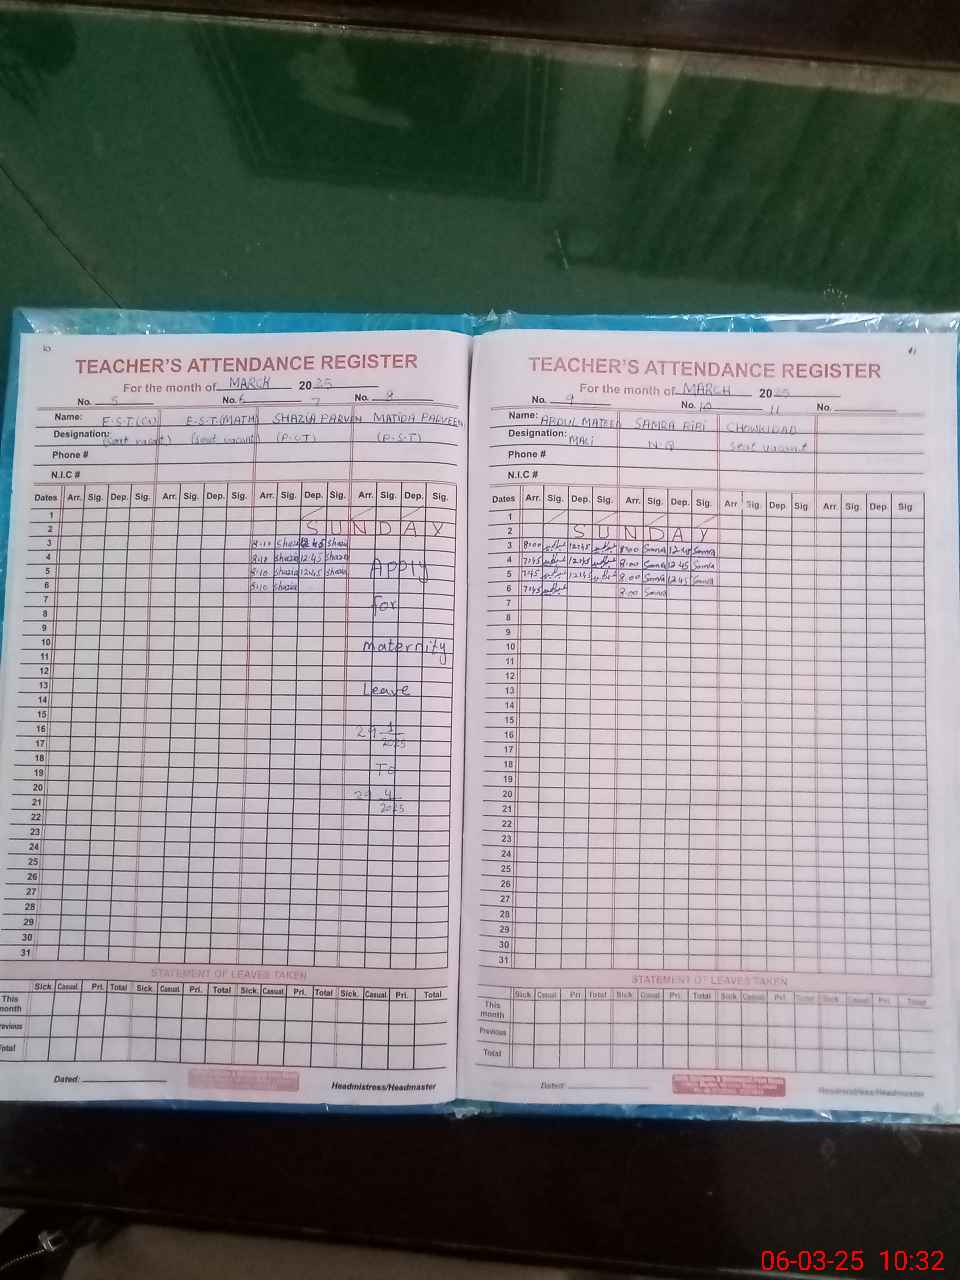 TEACHER'S ATTENDANCE REGISTER
For the month of MARCH 2025
No. 5 No. 6 7 No. 8
Name: E.S.T.(CV) E.S.T.(MATH) SHAZIA PARVEN MATIDA PARVEEN
Designation: (seat vacant) (seat vacant) (P.S.T) (P.S.T)
Phone #
N.I.C #
Dates Arr. Sig. Dep. Sig. Arr. Sig. Dep. Sig. Arr. Sig. Dep. Sig. Arr. Sig. Dep. Sig.
1
2 SUNDAY
3 8:10 Shazia 12:45 Shazia
4 8:10 Shazia 12:45 Shazia
5 8:10 Shazia 12:45 Shazia
6 8:10 Shazia
7
8
9
10
11
12
13
14
15
16
17
18
19
20
21
22
23
24
25
26
27
28
29
30
31
Apply
for
maternity
Leave
29 1/2025
To
29 4/2025
STATEMENT OF LEAVES TAKEN
Sick. Casual. Pri. Total Sick. Casual. Pri. Total Sick. Casual. Pri. Total Sick. Casual. Pri. Total
This month
Previous
Total
Dated:
Headmistress/Headmaster
TEACHER'S ATTENDANCE REGISTER
For the month of MARCH 2025
No. 9 No. 10 11 No.
Name: ABDUL MATEEN SAMRA BIBI CHOWKIDAD
Designation: MALI N.Q seat vacant
Phone #
N.I.C #
Dates Arr. Sig. Dep. Sig. Arr. Sig. Dep. Sig. Arr Sig. Dep Sig. Arr. Sig. Dep. Sig
1
2 SUNDAY
3 8:00 12:45 8:00 Samra 12:45 Samra
4 7:45 12:45 8:00 Samra 12:45 Samra
5 7:45 12:45 8:00 Samra 12:45 Samra
6 7:45 8:00 Samra
7
8
9
10
11
12
13
14
15
16
17
18
19
20
21
22
23
24
25
26
27
28
29
30
31
STATEMENT OF LEAVES TAKEN
Sick Casual Pri Total Sick Casual Pri. Total Sick Casual Pri. Total Sick Casual Pri. Total
This month
Previous
Total
Dated:
Headmistress/Headmaster
06-03-25 10:32